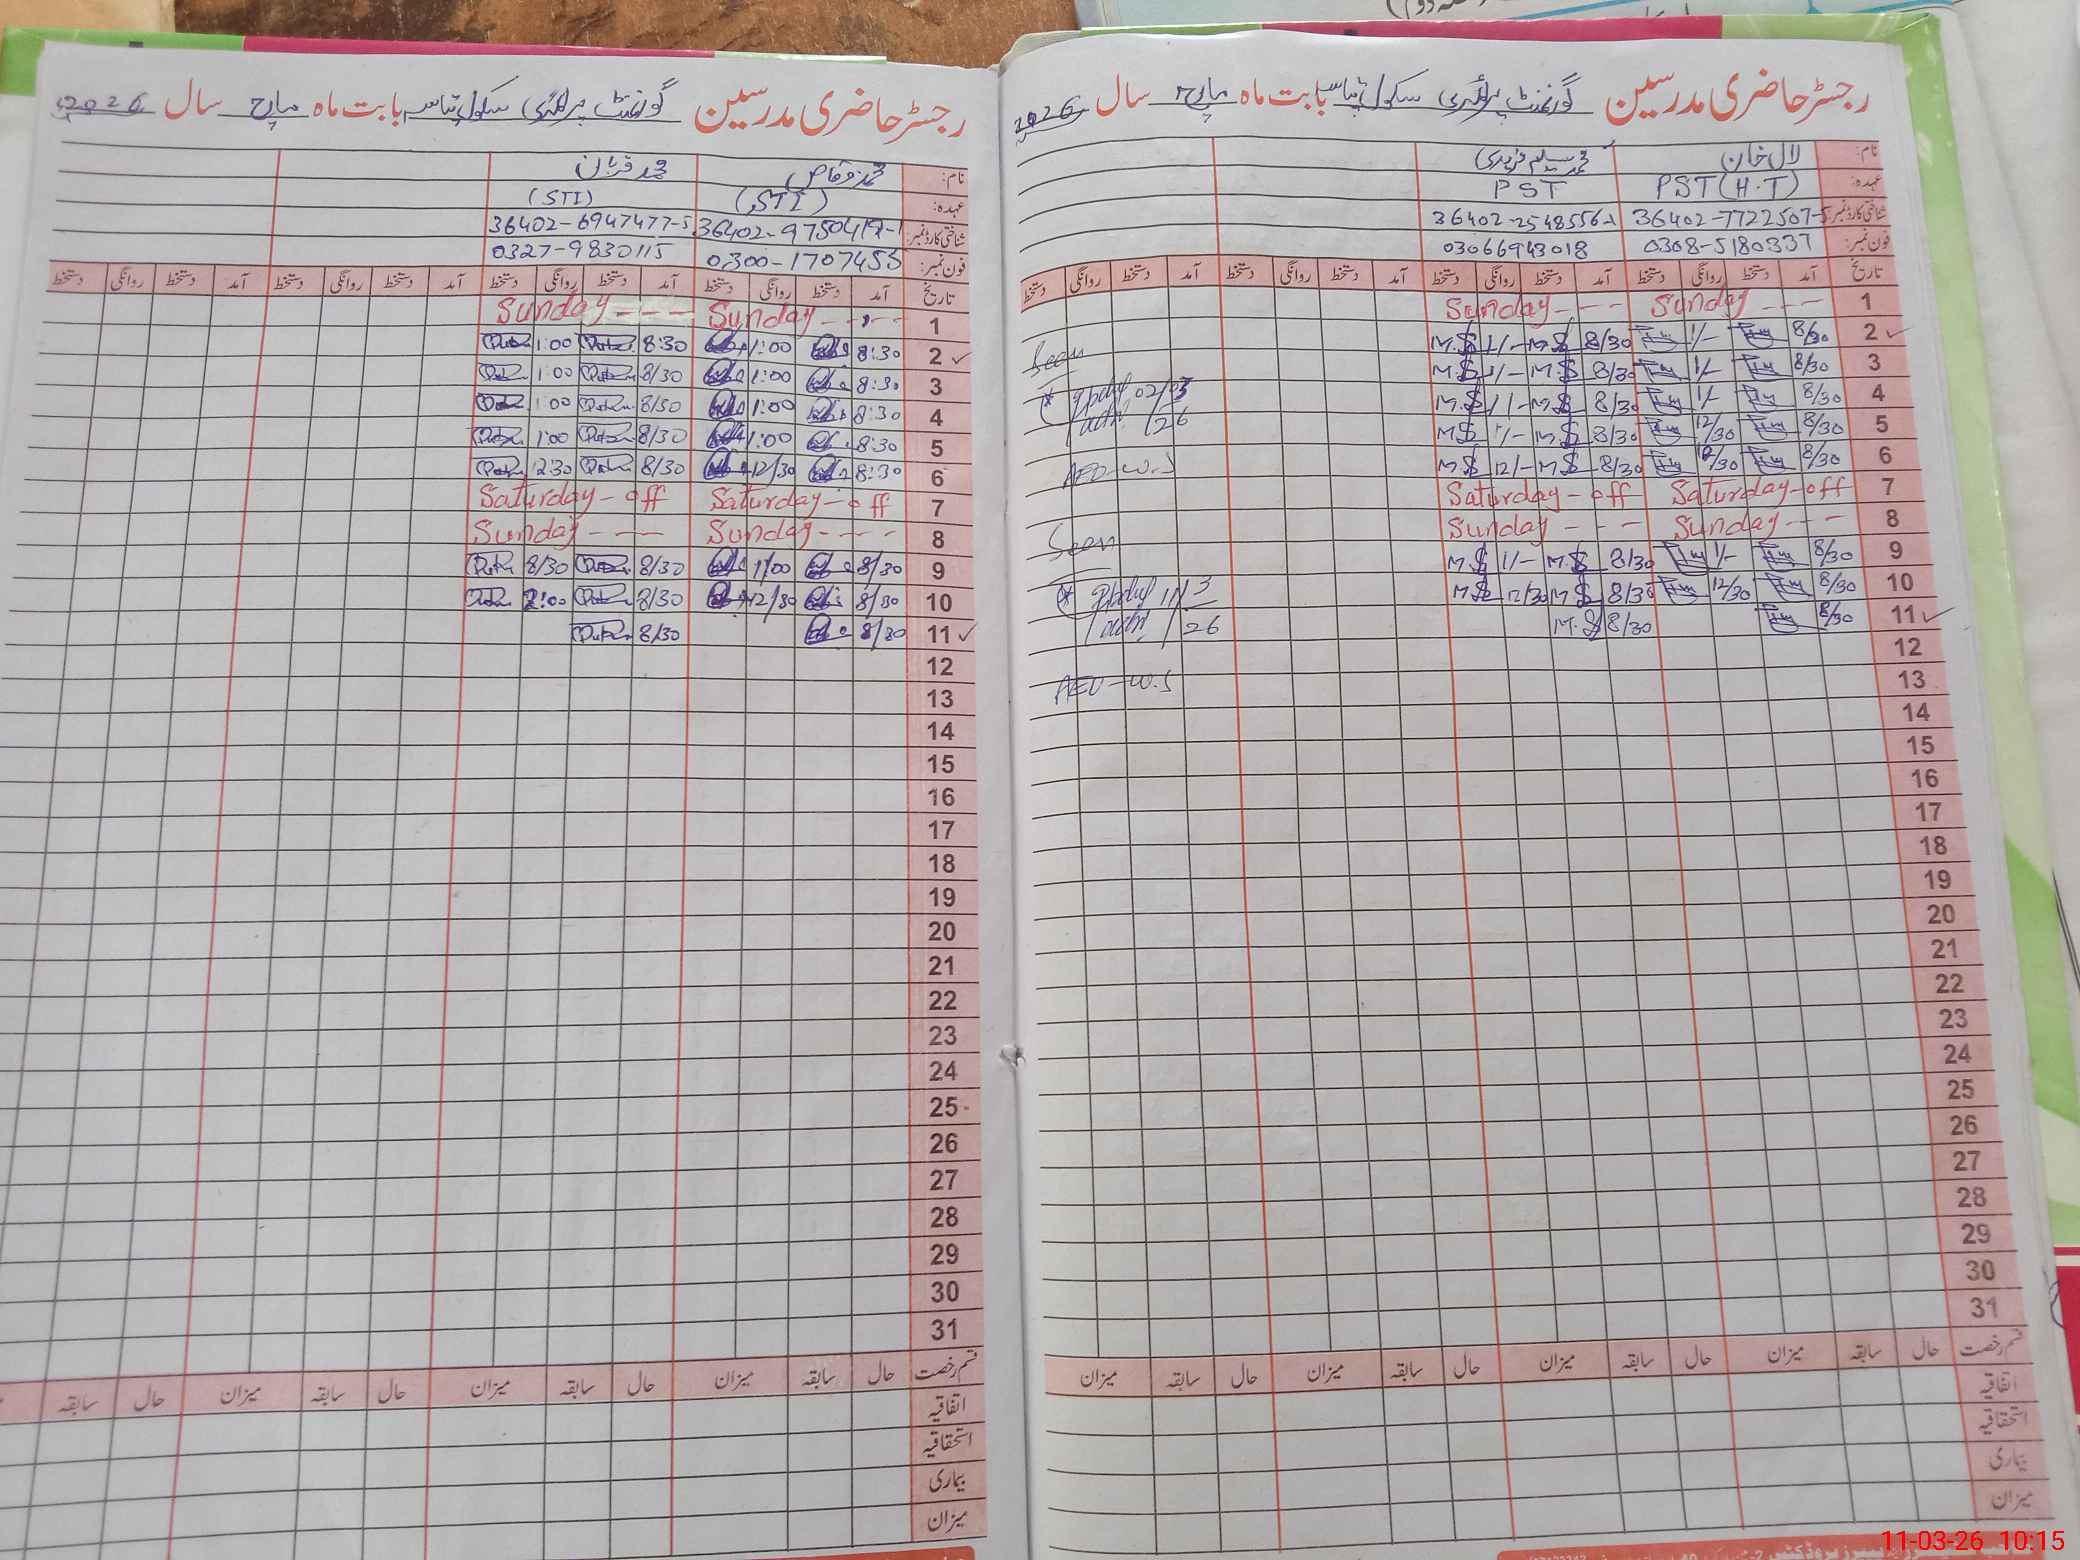 رجسٹر حاضری مدرسین گورنمنٹ پرائمری سکول بابت ماہ مارچ سال 2026
نام: لال خان محمد سلیم فریدی
عہدہ: PST (H.T) PST
شناختی کارڈ نمبر: 36402-7722507-5 36402-2548556-1
فون نمبر: 0308-5180337 03066943018
تاریخ آمد دستخط روانگی دستخط آمد دستخط روانگی دستخط آمد دستخط روانگی دستخط آمد دستخط روانگی دستخط
1 Sunday --- Sunday ---
2 ✓ 8/30 1/- 8/30 M.S 1/- M.S
3 8/30 1/- 8/30 M.S 1/- M.S
4 8/30 1/- 8/30 M.S 1/- M.S
5 8/30 12/30 8/30 M.S 1/- M.S
6 8/30 12/30 8/30 M.S 12/- M.S
7 Saturday-off Saturday-off
8 Sunday --- Sunday ---
9 8/30 1/- 8/30 M.S 1/- M.S
10 8/30 12/30 8/30 M.S 12/30 M.S
11 ✓ 8/30 8/30 M.S
12
13
14
15
16
17
18
19
20
21
22
23
24
25
26
27
28
29
30
31
Seen
02/03
26
AEO-W.S
Seen
11/3
26
AEO-W.S
قسم رخصت حال سابقہ میزان حال سابقہ میزان حال سابقہ میزان حال سابقہ میزان
اتفاقیہ
استحقاقیہ
بیماری
میزان
رجسٹر حاضری مدرسین گورنمنٹ پرائمری سکول بابت ماہ مارچ سال 2026
نام: محمد وقاص محمد قربان
عہدہ: (STI) (STI)
شناختی کارڈ نمبر: 36402-9750419-1 36402-6947477-5
فون نمبر: 0300-1707455 0327-9830115
تاریخ آمد دستخط روانگی دستخط آمد دستخط روانگی دستخط آمد دستخط روانگی دستخط آمد دستخط روانگی دستخط
1 Sunday ---- Sunday ----
2 ✓ 8:30 1:00 8:30 1:00
3 8:30 1:00 8/30 1:00
4 8:30 1:00 8/30 1:00
5 8:30 1:00 8/30 1:00
6 8:30 12/30 8/30 12:30
7 Saturday-off Saturday-off
8 Sunday ---- Sunday ---
9 8/30 1/00 8/30 8/30
10 8/30 12/30 8/30 2:00
11 ✓ 8/30 8/30
12
13
14
15
16
17
18
19
20
21
22
23
24
25
26
27
28
29
30
31
قسم رخصت حال سابقہ میزان حال سابقہ میزان حال سابقہ میزان حال سابقہ
اتفاقیہ
استحقاقیہ
بیماری
میزان
11-03-26 10:15